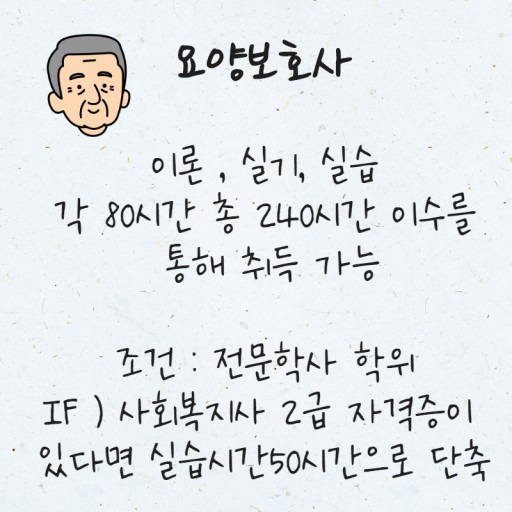 요양보호사
이론 , 실기, 실습
각 80시간 총 240시간 이수를
통해 취득 가능
조건 : 전문학사 학위
IF ) 사회복지사 2급 자격증이
있다면 실습시간50시간으로 단축